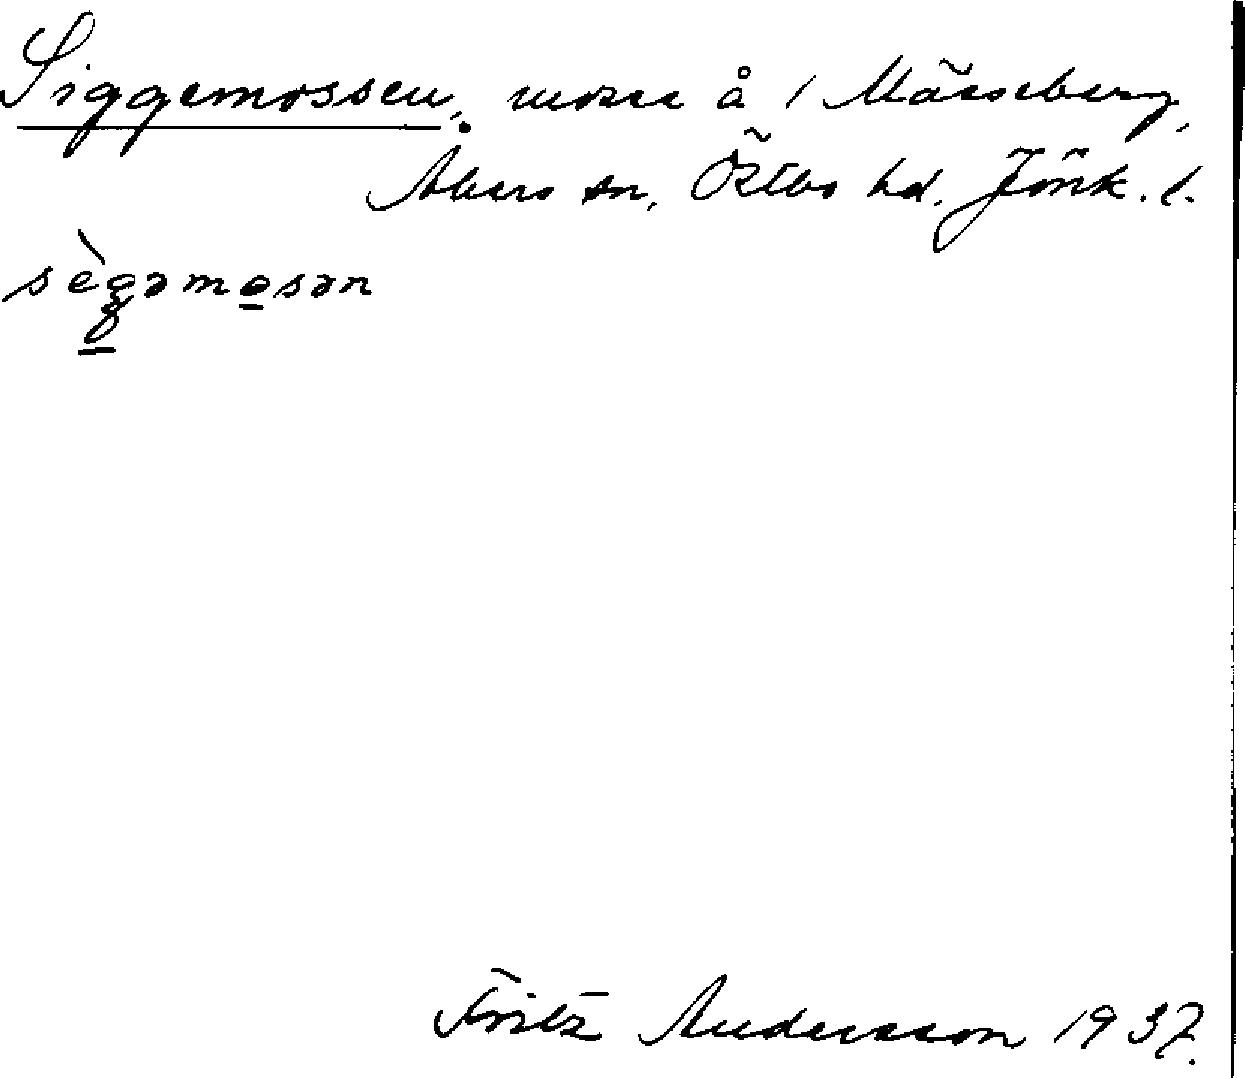 Siggemossen, mosse å 1 Mässeberg,
Åkers sn, Östbo hd. Jönk. l.
sègəmosən
Fritz Andersson 1937.